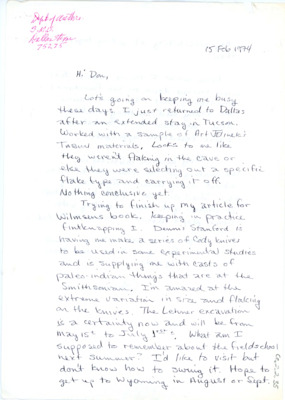 Dept of Anthro
S.M.U.
Dallas Texas
75275
15 Feb 1974
Hi Don,
Lots going on keeping me busy
these days. I just returned to Dallas
after an extended stay in Tucson.
Worked with a sample of Art Jelinek's
Tabun materials. Looks to me like
they weren't flaking in the cave or
else they were selecting out a specific
flake type and carrying it off.
Nothing conclusive yet.
Trying to finish up my article for
Wilmsens book. Keeping in practice
flintknapping I. Dennis Stanford is
having me make a series of Cody knives
to be used in some experimental studies
and is supplying me with casts of
paleo-indian things that are at the
Smithsonian. I'm amazed at the
extreme variation in size and flaking
on the knives. The Lehner excavation
is a certainty now and will be from
May 15th to July 1st. What am I
supposed to remember about the fieldschool
next summer? I'd like to visit but
don't know how to swing it. Hope to
get up to Wyoming in August or Sept.